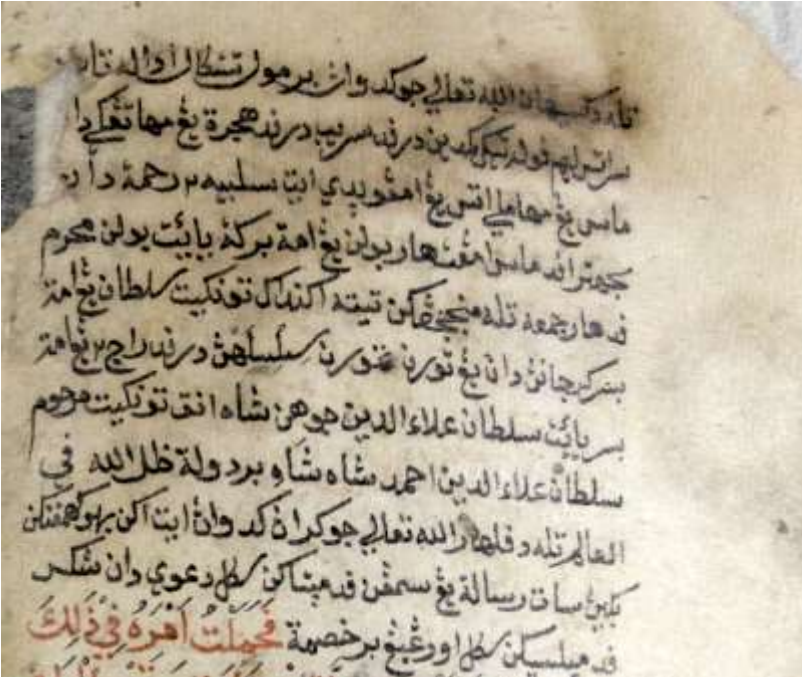 تله دکسيهان الله تعالي جوکد وان برمول تتکال اداله
سراتس ليم ڤوله تيک کمدين درند سريب درند هجرة يڠ مها تڠکي دا
ماس يڠ مها ملي اتس يڠ امڤوپدي ايت سلبيه٢ رحمة دا
جهترا ڤد ماس امڤت هاربولن يڠ امة برکة يائيت بولن محرم
ڤد هارجمعه تله منجنجڠکن تيته اکنداک تونکيت سلطان يڠ امة
بسر کرجائن دان يڠ تورن تمورن سلسلهڽ درند راج٢ يڠ امة
بسر يائيت سلطان علاء الدين جوهن شاه انق تونکيت مرحوم
سلطان علاء الدين احمد شاه شاه بردولة ظل الله في
العالم تله دڤلهار الله تعالي جوکران کد وان ايت اکن بهو کهمڤنکن
بکين سات رسالة يڠ سمڤن ڤد مپتاکن سکل دعوي دان شکس
ڤد مپلسيکن سکل اورڠ يڠ برخصمة فَحَمَلْتُ اَمْرَهُ فِي ذٰلِكَ